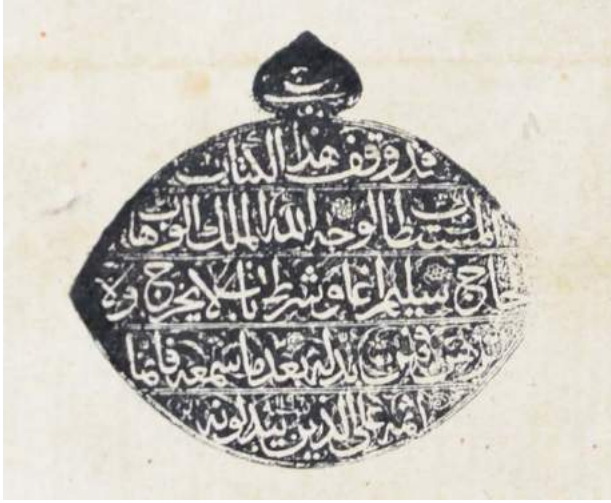 قد وقف هذا الكتاب
المستطاب لوجه الله الملك الوهاب
حاج سليم اغا وشرط بان لا يخرج ولا
فمن بدله بعد ما سمعه فانما
اثمه على الذين يبدلونه